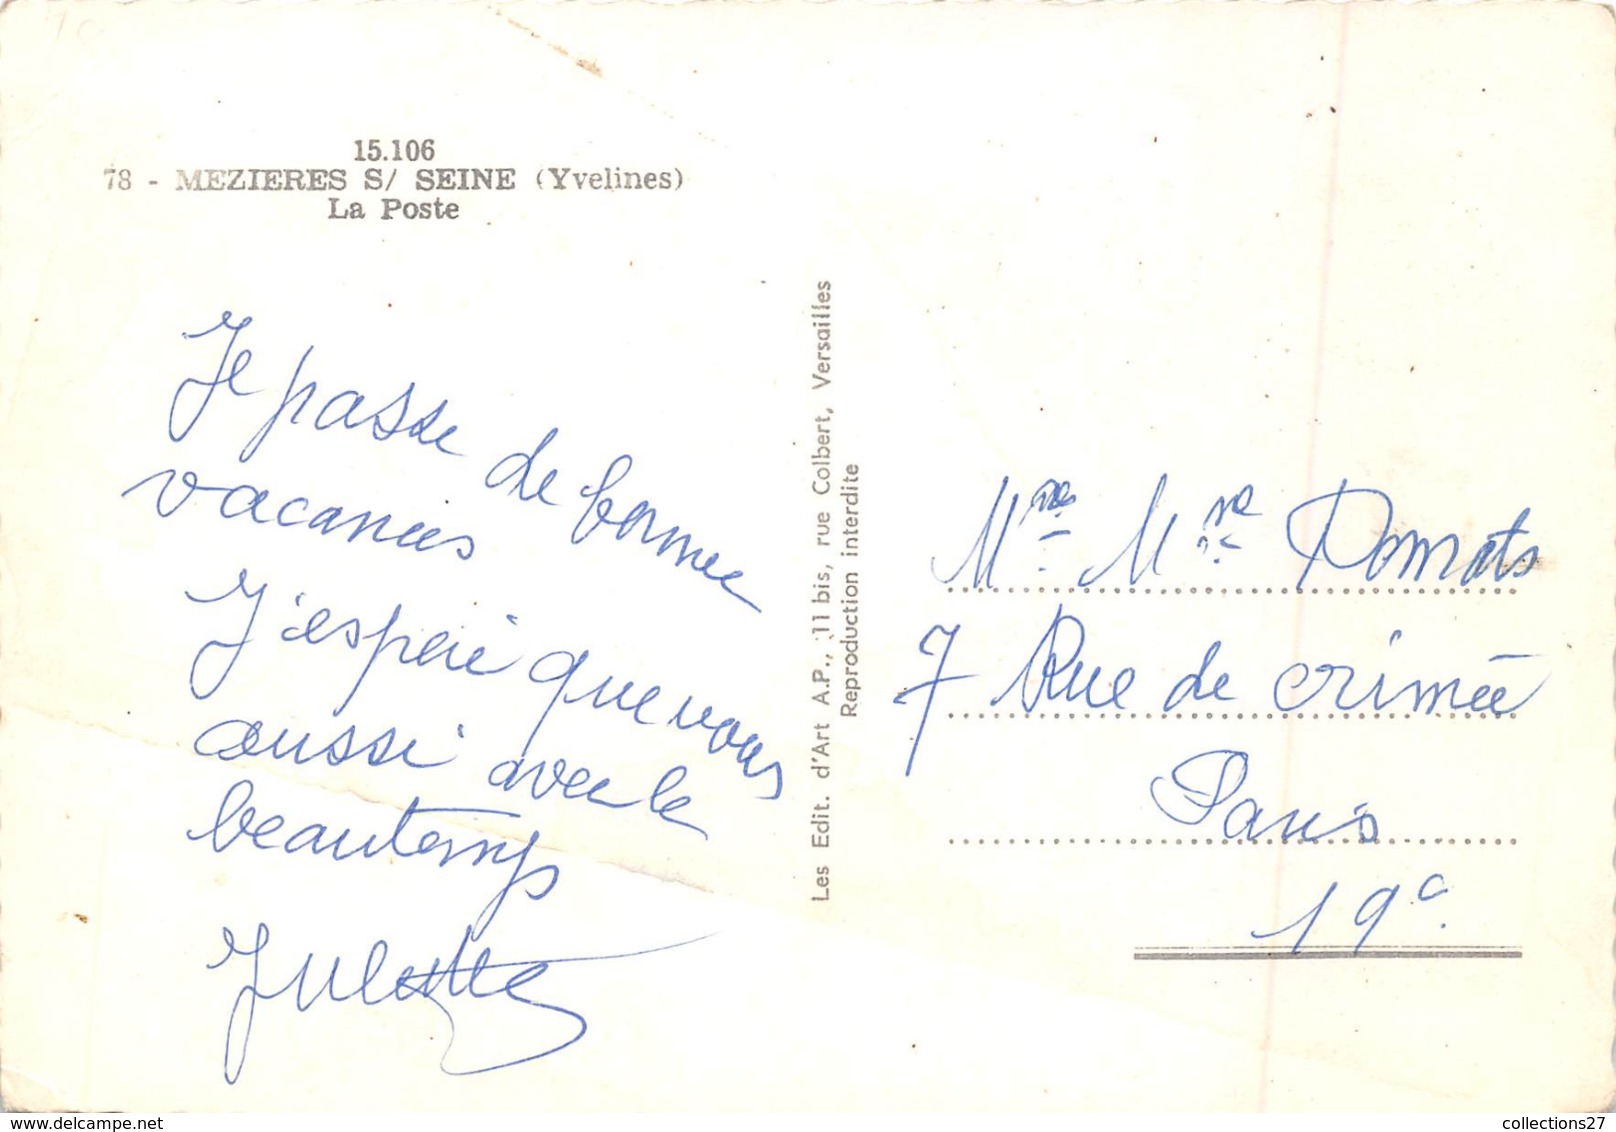 15.106
78 - MEZIERES S/ SEINE (Yvelines)
La Poste
Je passe de bonne
vacances
J'espère que vous
aussi avec le
beau temps
Juliette
Les Edit. d'Art A.P., 11 bis, rue Colbert, Versailles
Reproduction interdite
7 Rue de crimée
Paris
19e
collections27
www.delcampe.net